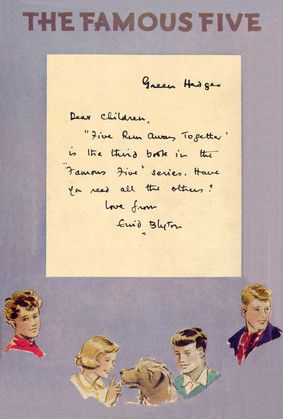 THE FAMOUS FIVE
Green Hedges
Dear Children,
"Five Run Away Together"
is the third book in the
"Famous Five" series. Have
you read all the others?
Love from
Enid Blyton